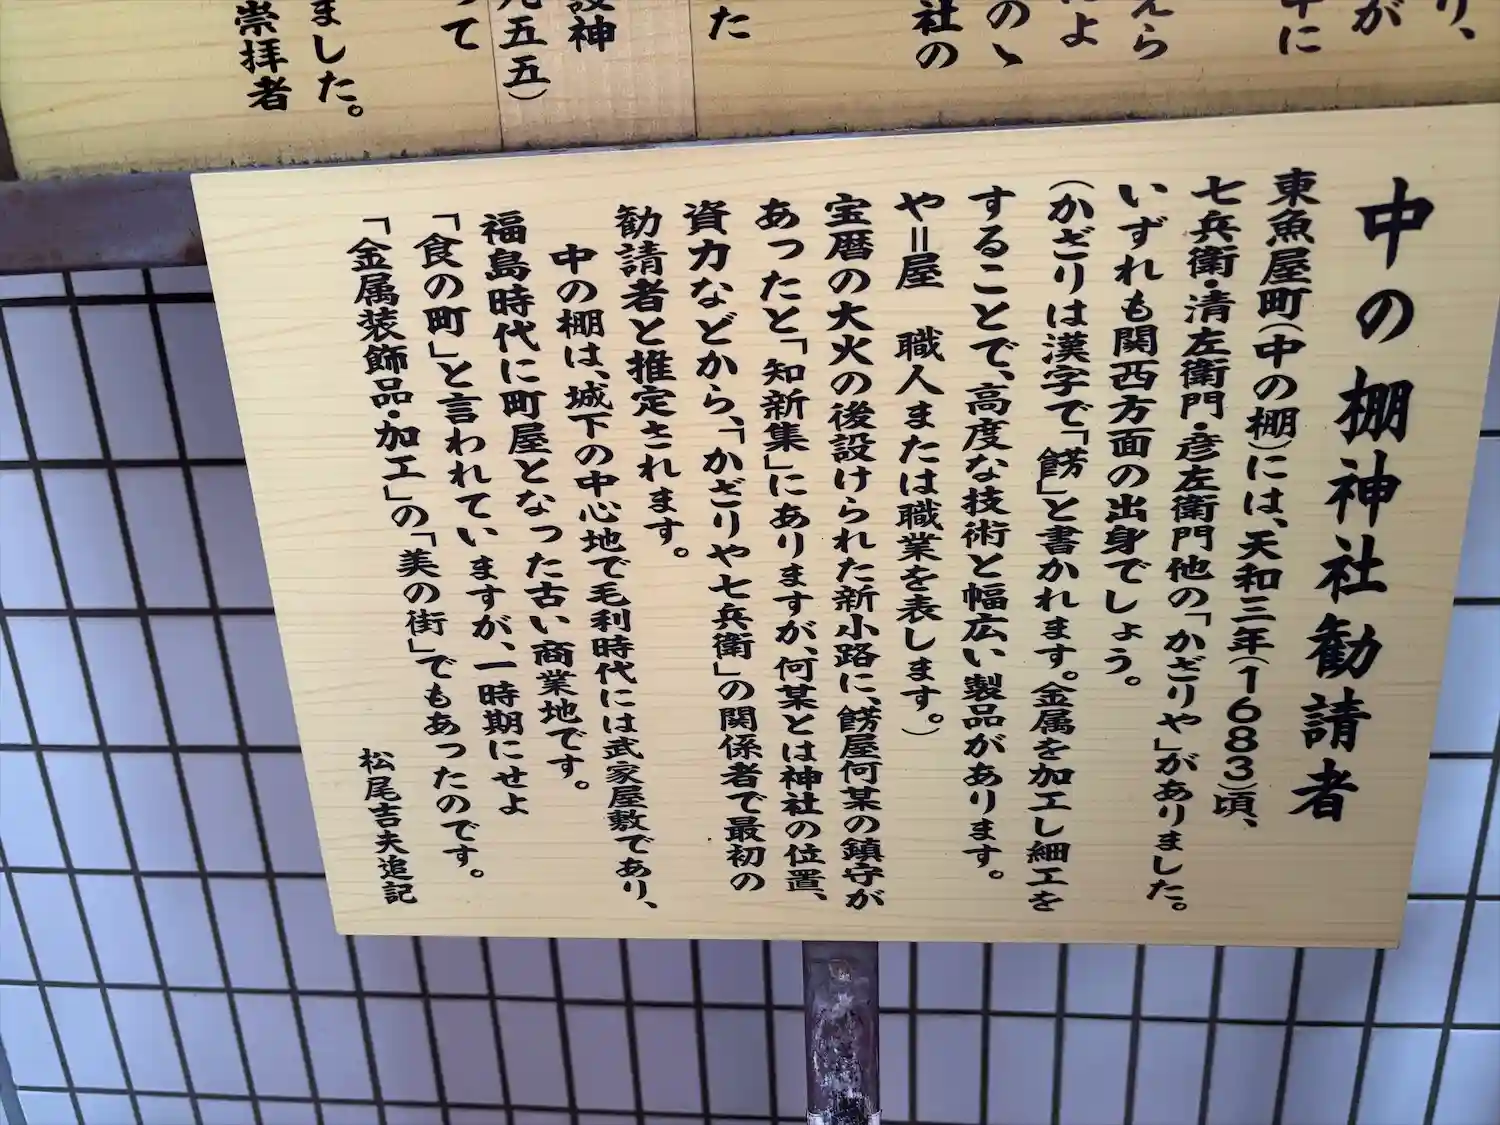 り、
が
中に
えら
によ
のゝ
社の
た
設神
九五五)
って
ました。
崇拝者
中の棚神社勧請者
東魚屋町(中の棚)には、天和三年(1683)頃、
七兵衛・清左衛門・彦左衛門他の「かざりや」がありました。
いずれも関西方面の出身でしょう。
(かざりは漢字で「餝」と書かれます。金属を加工し細工を
することで、高度な技術と幅広い製品があります。
や=屋 職人または職業を表します。)
宝暦の大火の後設けられた新小路に、餝屋何某の鎮守が
あったと「知新集」にありますが、何某とは神社の位置、
資力などから、「かざりや七兵衛」の関係者で最初の
勧請者と推定されます。
中の棚は、城下の中心地で毛利時代には武家屋敷であり、
福島時代に町屋となった古い商業地です。
「食の町」と言われていますが、一時期にせよ
「金属装飾品・加工」の「美の街」でもあったのです。
松尾吉夫追記